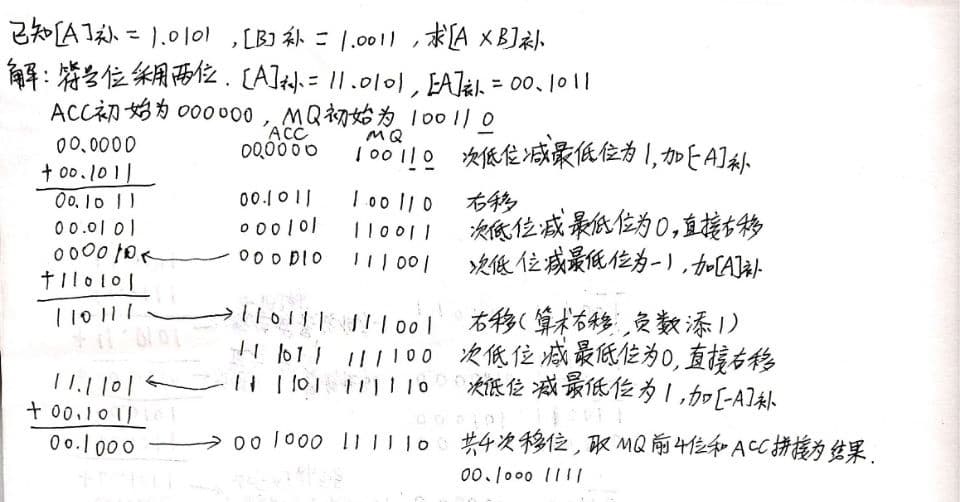 已知[A]补 = 1.0101 ,[B]补 = 1.0011 ,求[A×B]补.
解: 符号位采用两位. [A]补 = 11.0101, [-A]补 = 00.1011
ACC初始为000000, MQ初始为100110
ACC MQ
00.0000 00.0000 100110 次低位减最低位为1,加[-A]补
+00.1011
00.1011 00.1011 100110 右移
00.0101 000101 110011 次低位减最低位为0,直接右移
000010 000010 111001 次低位减最低位为-1,加[A]补
+110101
110111 110111 111001 右移(算术右移,负数添1)
111011 111100 次低位减最低位为0,直接右移
11.1101 111101 111110 次低位减最低位为1,加[-A]补
+00.1011
00.1000 001000 111110 共4次移位,取MQ前4位和ACC拼接为结果.
00.1000 1111